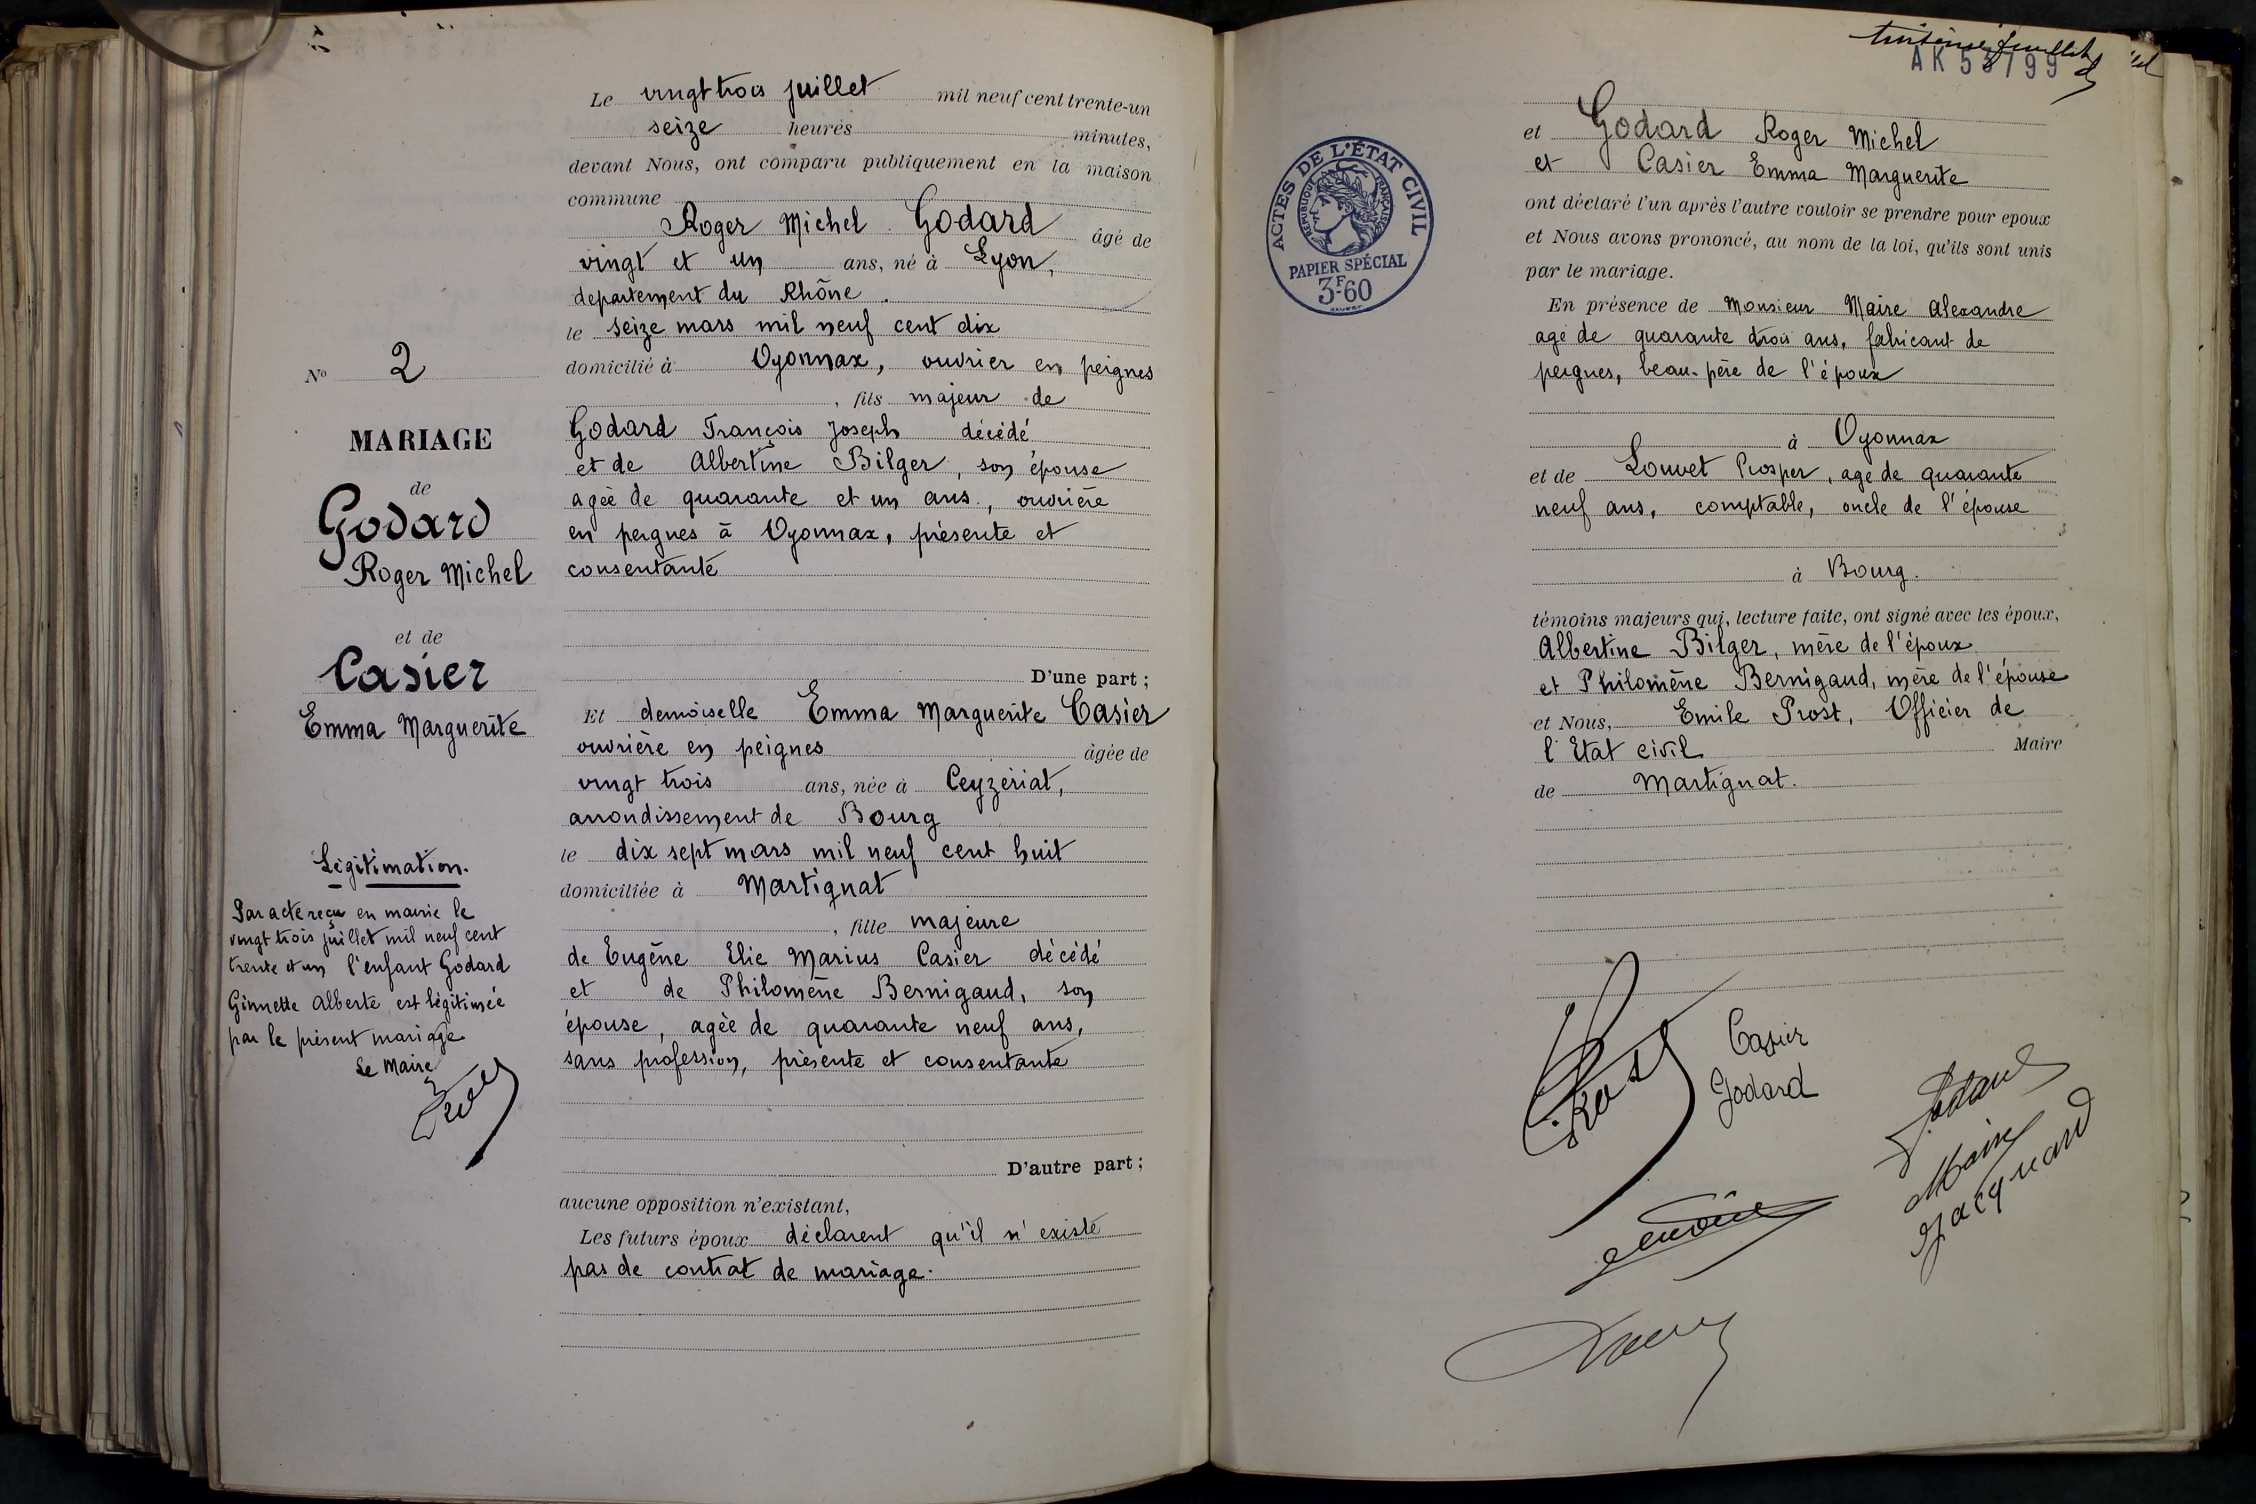 N° 2
MARIAGE
de
Godard
Roger Michel
et de
Casier
Emma Marguerite
Légitimation.
Par acte reçu en mairie le
vingt trois juillet mil neuf cent
trente et un l'enfant Godard
Ginnette Alberte est légitimée
par le présent mariage
Le Maire
Prost
Le vingt trois juillet mil neuf cent trente-un
seize heures minutes,
devant Nous, ont comparu publiquement en la maison
commune
Roger Michel Godard âgé de
vingt et un ans, né à Lyon,
département du Rhône.
le seize mars mil neuf cent dix
domicilié à Oyonnax, ouvrier en peignes
, fils majeur de
Godard François Joseph décédé
et de Albertine Bilger, son épouse
agée de quarante et un ans, ouvrière
en peignes à Oyonnax, présente et
consentante
D'une part ;
Et demoiselle Emma Marguerite Casier
ouvrière en peignes âgée de
vingt trois ans, née à Ceyzériat,
arrondissement de Bourg
le dix sept mars mil neuf cent huit
domiciliée à Martignat
, fille majeure
de Eugène Elie Marius Casier décédé
et de Philomène Bernigaud, son
épouse, agée de quarante neuf ans,
sans profession, présente et consentante
D'autre part ;
aucune opposition n'existant,
Les futurs époux déclarent qu'il n'existe
pas de contrat de mariage.
troisième feuillet
AK 55799
ACTES DE L'ÉTAT CIVIL
RÉPUBLIQUE FRANÇAISE
PAPIER SPÉCIAL
3F-60
et Godard Roger Michel
et Casier Emma Marguerite
ont déclaré l'un après l'autre vouloir se prendre pour époux
et Nous avons prononcé, au nom de la loi, qu'ils sont unis
par le mariage.
En présence de Monsieur Maire Alexandre
agé de quarante trois ans, fabricant de
peignes, beau-père de l'époux
à Oyonnax
et de Louvet Prosper, agé de quarante
neuf ans, comptable, oncle de l'épouse
à Bourg.
témoins majeurs qui, lecture faite, ont signé avec les époux,
Albertine Bilger, mère de l'époux
et Philomène Bernigaud, mère de l'épouse
et Nous, Emile Prost, Officier de
l'Etat civil Maire
de Martignat.
Prost
Casier
Godard
Godard
Maire
Jacquard